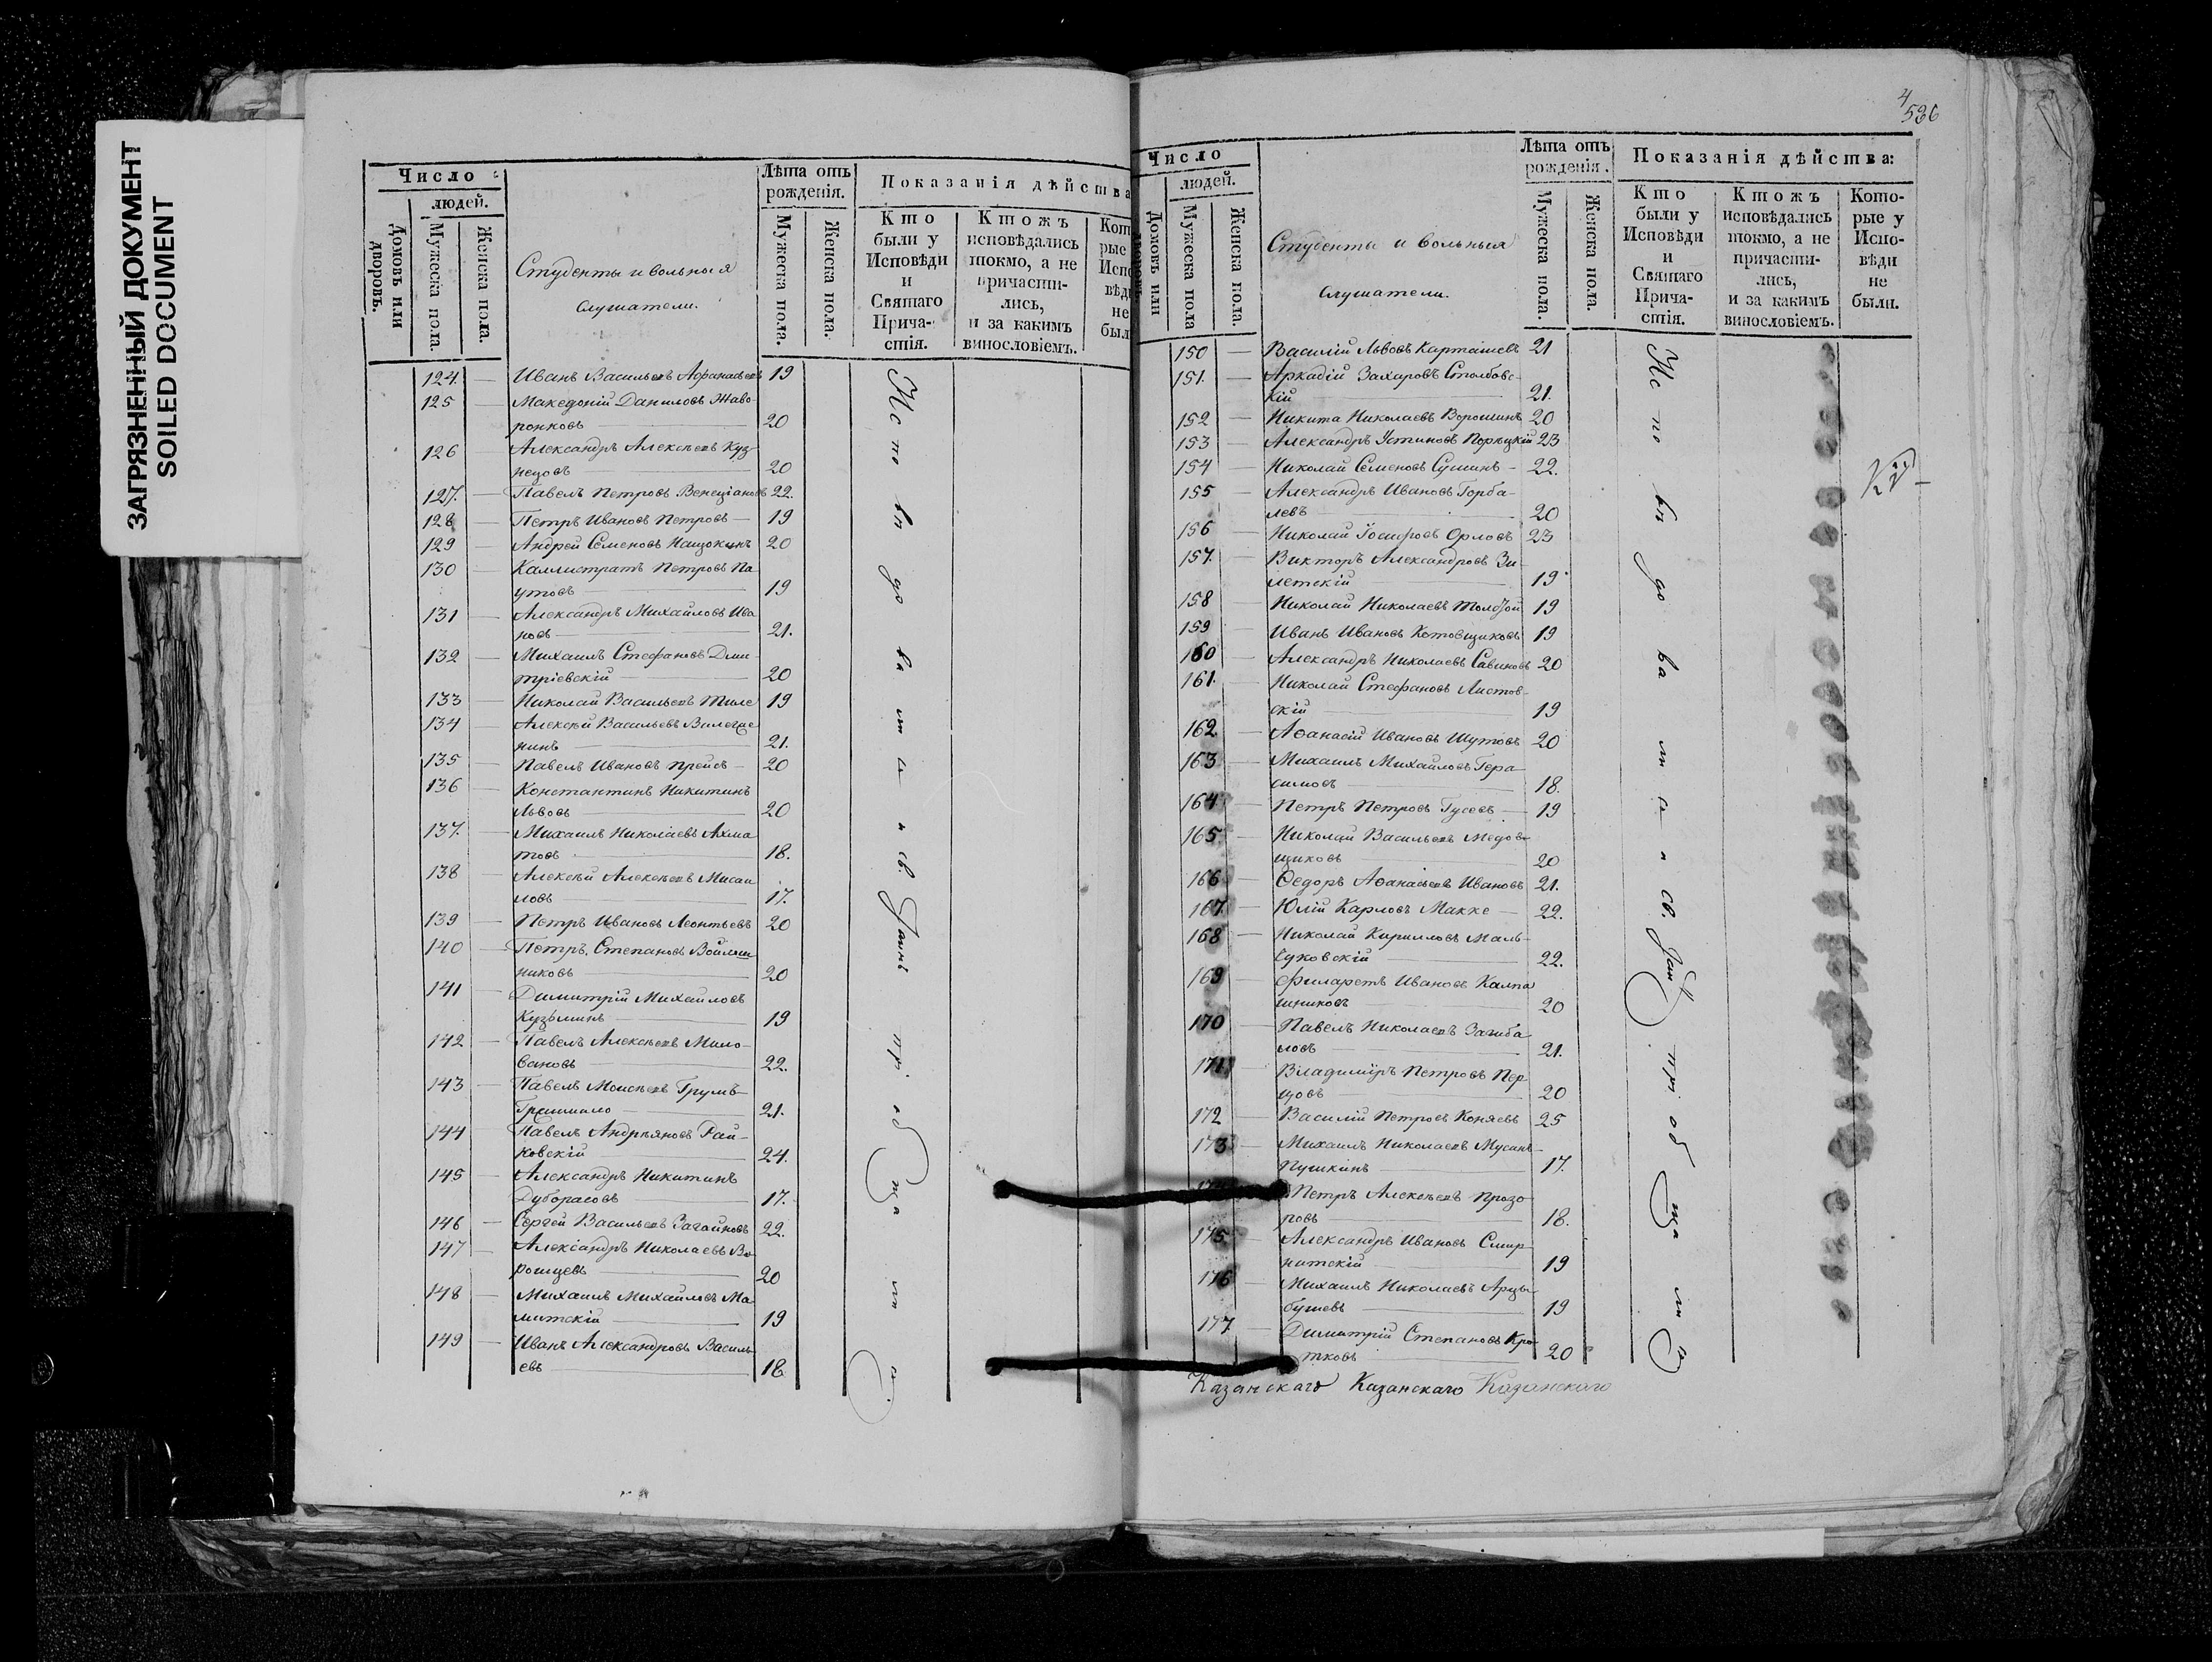 ЗАГРЯЗНЕННЫЙ ДОКУМЕНТ
SOILED DOCUMENT
Число
людей.
Домовъ или дворовъ.
Мужеска пола.
Женска пола.
Студенты и вольныя
слушатели.
Лѣта отъ
рожденія.
Мужеска пола.
Женска пола.
Показанія дѣйства
Кто
были у
Исповѣди
и
Святаго
Прича-
стія.
Ктожъ
исповѣдались
токмо, а не
причасти-
лись,
и за какимъ
винословіемъ.
Кот
рые
Исп
вѣд
не
был
124. Иванъ Васильевъ Афанасьевъ 19
125 Македоній Даниловъ Жаво-
ронковъ 20
126 Александръ Алексѣевъ Куз-
нецовъ 20
127. Павелъ Петровъ Венеціановъ 22.
128 Петръ Ивановъ Петровъ 19
129 Андрей Семеновъ Нащокинъ 20
130 Каллистратъ Петровъ Па
утовъ 19
131 Александръ Михайловъ Ива
новъ 21.
132 Михаилъ Стефановъ Дми-
тріевскій 20
133 Николай Васильевъ Тиле 19
134 Алексѣй Васильевъ Вилегж
нинъ 21.
135 Павелъ Ивановъ Прейсъ 20
136 Константинъ Никитинъ
Львовъ 20
137. Михаилъ Николаевъ Ахма
товъ 18.
138 Алексѣй Алексѣевъ Мисаи
ловъ 17.
139 Петръ Ивановъ Леонтьевъ 20
140 Петръ Степановъ Войлош
никовъ 20
141 Димитрій Михайловъ
Кузьминъ 19
142 Павелъ Алексѣевъ Мило-
вановъ 22.
143 Павелъ Моисѣевъ Грумъ-
Гржимало 21.
144 Павелъ Андрѣяновъ Рай-
ковскій 24.
145 Александръ Никитинъ
Дуборасовъ 17.
146 Сергей Васильевъ Загайновъ 22.
147 Александръ Николаевъ Во-
рошцевъ 20
148 Михаилъ Михайловъ Ма-
митскій 19
149 Иванъ Александровъ Василь-
евъ 18
Исповѣдовались и св. Таинъ пріобщались
4
536
Число
людей.
Домовъ или
Мужеска пола
Женска пола.
Студенты и вольныя
слушатели.
Лѣта отъ
рожденія.
Мужеска пола.
Женска пола.
Показанія дѣйства:
Кто
были у
Исповѣди
и
Святаго
Прича-
стія.
Ктожъ
исповѣдались
токмо, а не
причасти-
лись,
и за какимъ
винословіемъ.
Кото-
рые у
Испо-
вѣди
не
были.
150 Василій Львовъ Карташевъ 21
151. Аркадій Захаровъ Столбовс-
кій 21.
152 Никита Николаевъ Ворошинъ 20
153 Александръ Устиновъ Порѣцкій 23
154 Николай Семеновъ Сушинъ 22.
155 Александръ Ивановъ Горба-
левъ 20
156 Николай Іосифовъ Орловъ 23
157. Викторъ Александровъ Зи-
летскій 19
158 Николай Николаевъ Толстой 19
159 Иванъ Ивановъ Котовщиковъ 19
160 Александръ Николаевъ Савиновъ 20
161. Николай Стефановъ Листов-
скій 19
162 Аѳанасій Ивановъ Шутовъ 20
163 Михаилъ Михайловъ Гера
симовъ 18.
164 Петръ Петровъ Гусевъ 19
165 Николай Васильевъ Медов-
щиковъ 20
166 Ѳедоръ Аѳанасьевъ Ивановъ 21.
167. Юлій Карловъ Макке 22.
168 Николай Кирилловъ Маль-
чуковскій 22.
169 Филаретъ Ивановъ Калпа
шниковъ 20
170 Павелъ Николаевъ Загиба
ловъ 21.
171 Владиміръ Петровъ Пер-
цовъ 20
172 Василій Петровъ Коняевъ 25
173 Михаилъ Николаевъ Мусинъ-
Пушкинъ 17.
Петръ Алексѣевъ Прозо-
ровъ 18.
175 Александръ Ивановъ Смир-
нитскій 19
176 Михаилъ Николаевъ Арцы-
бушевъ 19
177 Димитрій Степановъ Кро-
тковъ 20
Исповѣдовались и св. Таинъ пріобщались
Казанскаго Казанскаго Казанскаго